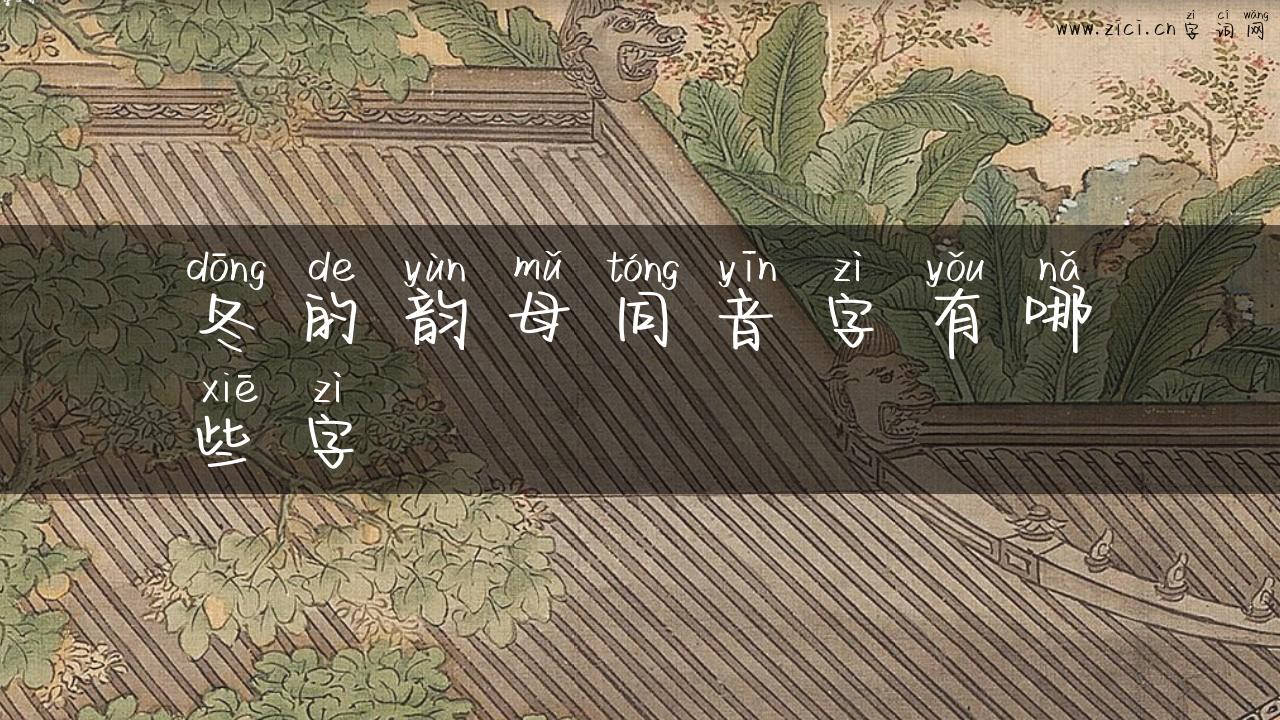 zì cí wǎng
www.zici.cn 字词网
dōng de yùn mǔ tóng yīn zì yǒu nǎ
冬的韵母同音字有哪
xiē zì
些字